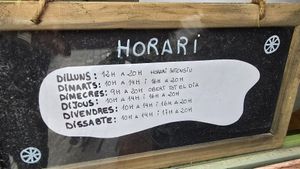 HORARI
DILLUNS: 12H A 20H HORARI INTENSIU
DIMARTS: 10H A 14H i 16H A 20H
DIMECRES: 9H A 20H OBERT TOT EL DIA
DIJOUS: 10H A 14H i 16H A 20H
DIVENDRES: 10H A 14H i 16H A 20H
DISSABTE: 10H A 14H i 17H A 20H